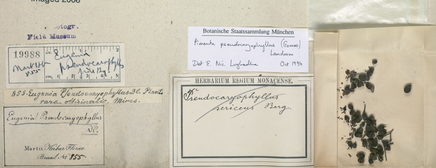 Field Museum
19988
Eugenia
pseudocaryophyllus
Botanische Staatssammlung München
Pimenta pseudocaryophyllus (Gomes)
Landrum
Det E. Nic Lughadha Oct 1996
HERBARIUM REGIUM MONACENSE.
Pseudocaryophyllus
sericeus Berg
855. Eugenia Pseudocaryophyllus DC.
Minas.
Eugenia Pseudocaryophyllus
DC.
Martii Herbar. Florae
Brasil. No. 855.